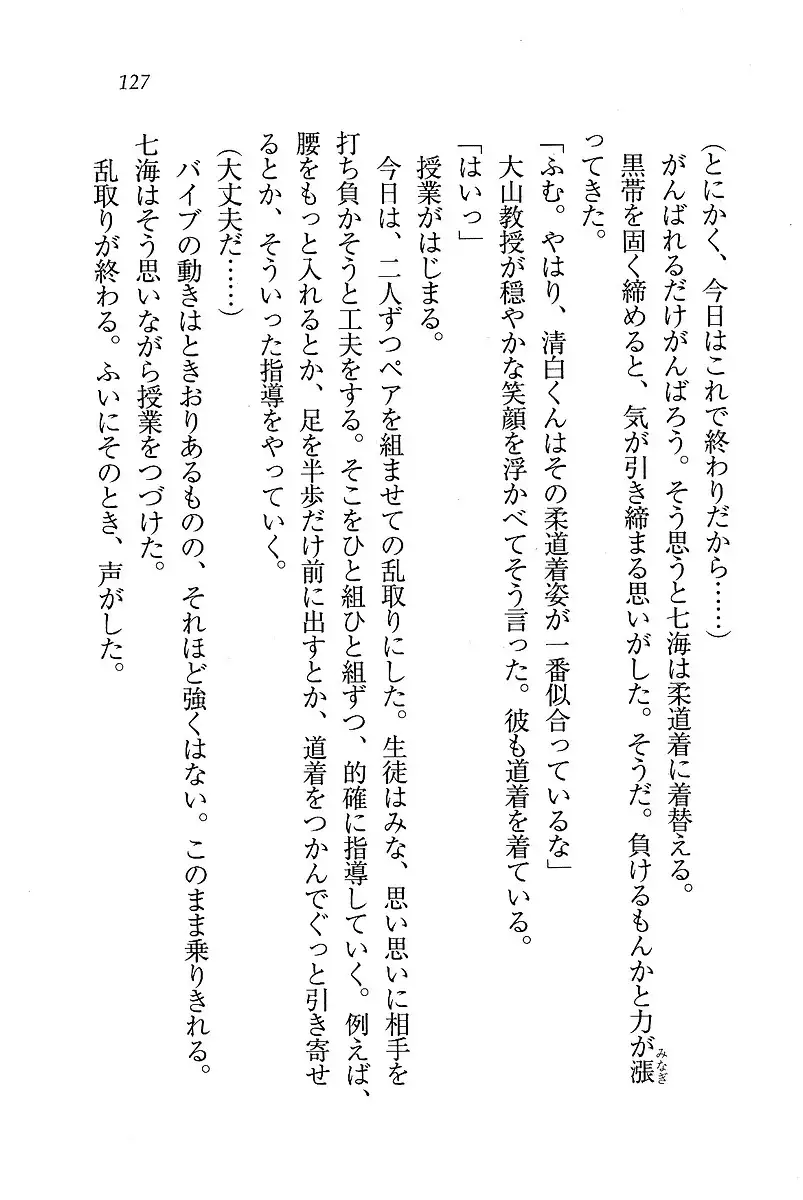 127
(とにかく、今日はこれで終わりだから……)
がんばれるだけがんばろう。そう思うと七海は柔道着に着替える。
黒帯を固く締めると、気が引き締まる思いがした。そうだ。負けるもんかと力が漲
みなぎ
ってきた。
「ふむ。やはり、清白くんはその柔道着姿が一番似合っているな」
大山教授が穏やかな笑顔を浮かべてそう言った。彼も道着を着ている。
「はいっ」
授業がはじまる。
今日は、二人ずつペアを組ませての乱取りにした。生徒はみな、思い思いに相手を
打ち負かそうと工夫をする。そこをひと組ひと組ずつ、的確に指導していく。例えば、
腰をもっと入れるとか、足を半歩だけ前に出すとか、道着をつかんでぐっと引き寄せ
るとか、そういった指導をやっていく。
(大丈夫だ……)
バイブの動きはときおりあるものの、それほど強くはない。このまま乗りきれる。
七海はそう思いながら授業をつづけた。
乱取りが終わる。ふいにそのとき、声がした。